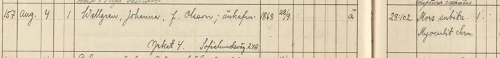 157 Aug. 4 1 Wellgren, Johanna, f. Olsson; änkefru 1868 28/9. ä 28/102 Mors subita 1.
Yrket 4. Sofielundsväg 24B Myocardit chron.